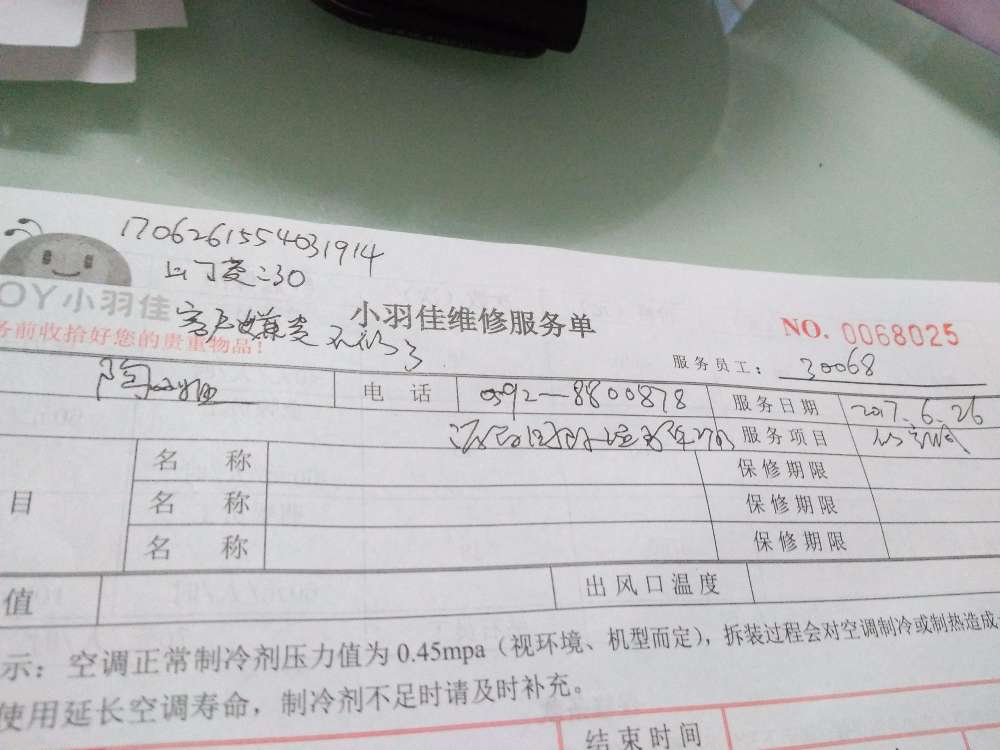 1706261554031914
上门费:30
OY小羽佳
客户嫌贵不修了
小羽佳维修服务单
NO. 0068025
务前收拾好您的贵重物品!
服务员工: 30068
陶小姐
电 话 0592-8800878
服务日期 2017.6.26
服务项目
目
名 称
保修期限
名 称
保修期限
名 称
保修期限
值
出风口温度
示:空调正常制冷剂压力值为0.45mpa(视环境、机型而定),拆装过程会对空调制冷或制热造成
使用延长空调寿命,制冷剂不足时请及时补充。
结束时间